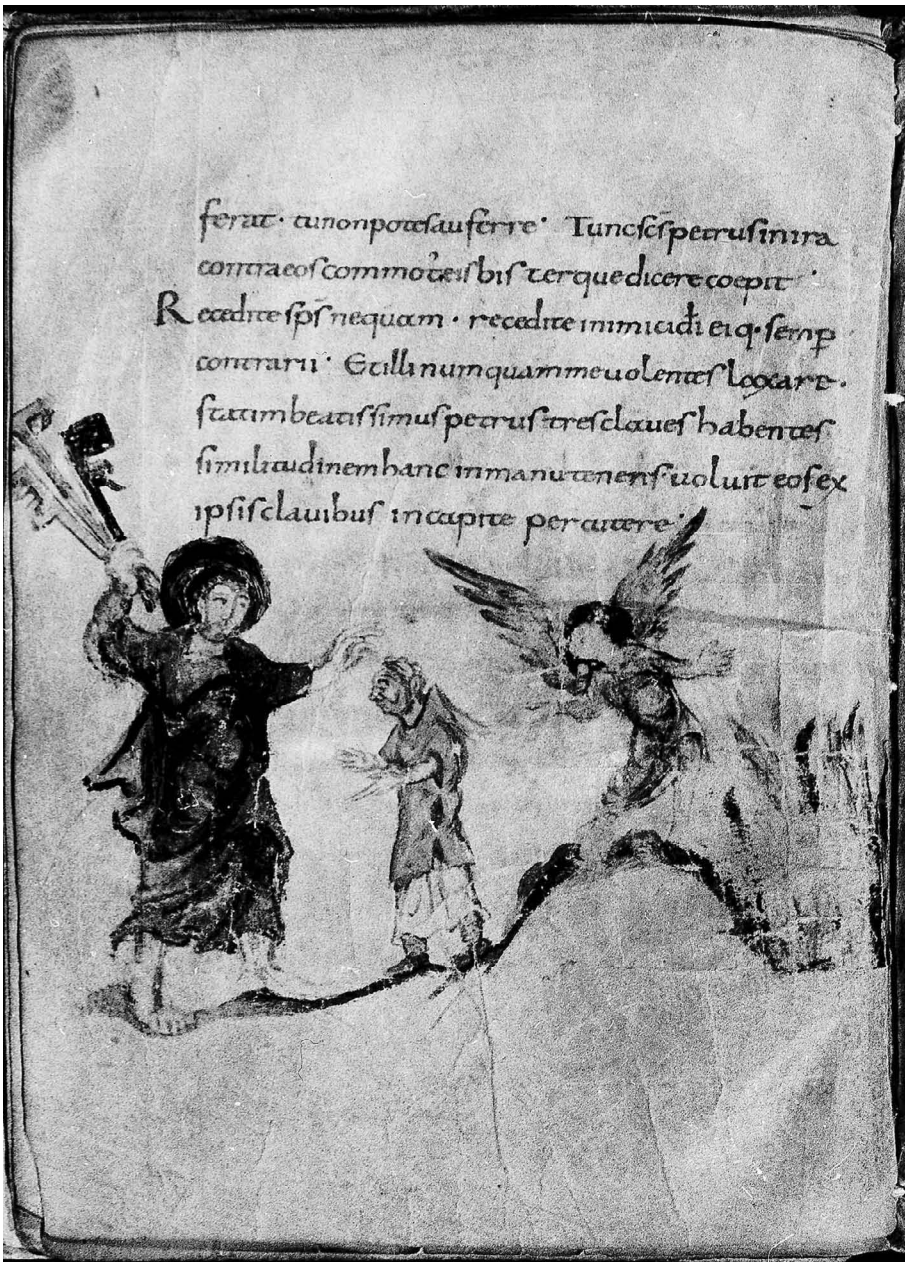 ferat · tu non potes auferre · Tunc sc̄s petrus in ira
contra eos commotus eis bis terque dicere coepit ·
Recedite sp̄s nequam · recedite inimici dī eiq· semp̄
contrarii · Et illi numquam me volentes laxare ·
statim beatissimus petrus tres claves habentes
similitudinem hanc in manu tenens · voluit eos ex
ipsis clavibus in capite percutere ·